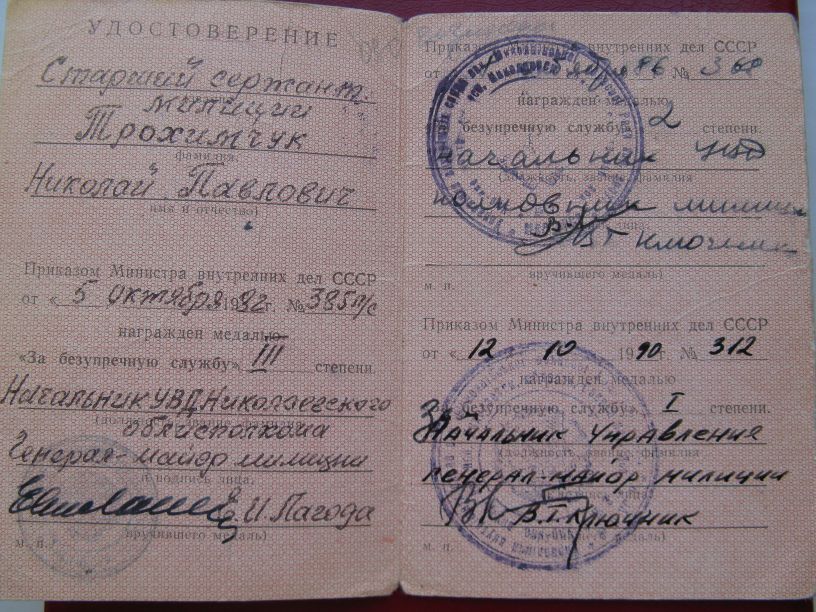 УДОСТОВЕРЕНИЕ
Старший сержант
милиции
Трохимчук
фамилия
Николай Павлович
имя и отчество)
Приказом Министра внутренних дел СССР
от « 5 октября 1982 г. № 385 л/с
награжден медалью
«За безупречную службу» III степени.
Начальник УВД Николаевского
облисполкома
Генерал-майор милиции
и подпись лица,
Е.И. Пагода
вручившего медаль)
м. п.
Приказом внутренних дел СССР
от 86 № 368
награжден медалью
безупречную службу» 2 степени.
начальник УВД
полковник милиции
В.Г Ключник
вручившего медаль)
м. п.
Приказом Министра внутренних дел СССР
от « 12 10 1990 № 312
награжден медалью
За безупречную службу» I степени.
Начальник Управления
(должность, звание, фамилия
генерал-майор милиции
В.Г. Ключник
вручившего медаль)
м. п.